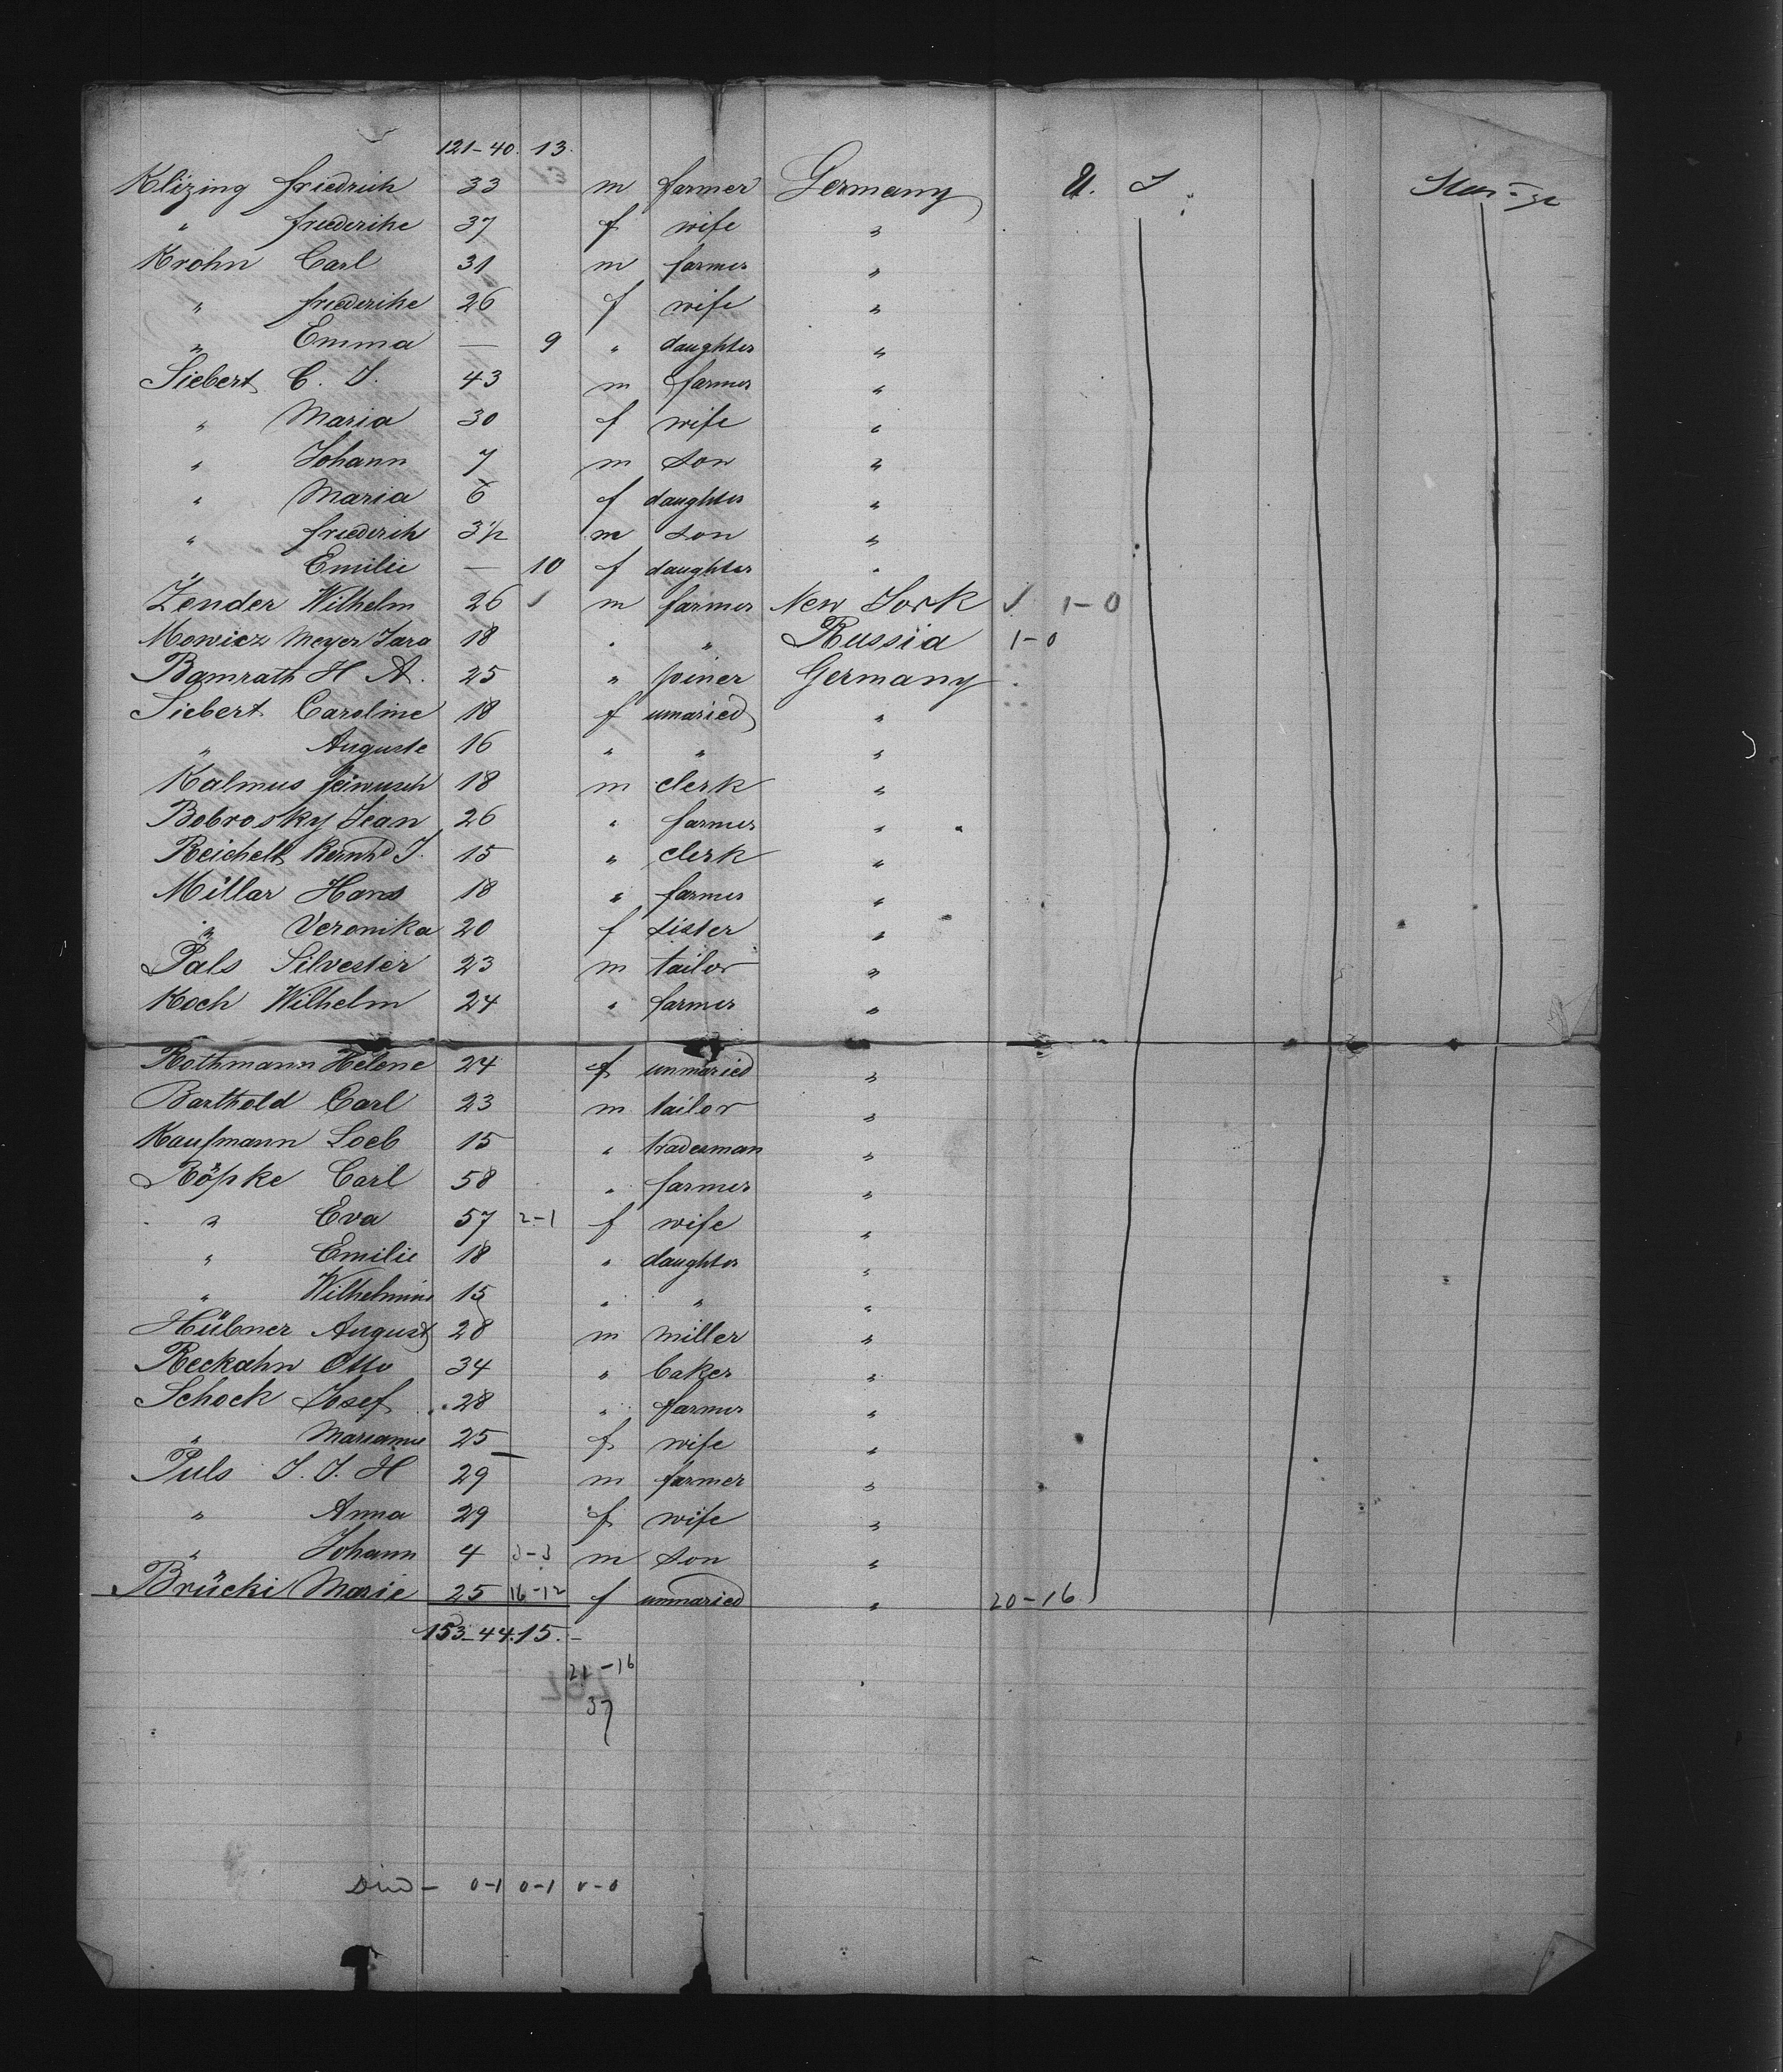 121-40. 13.
Klizing Friedrich 33 m farmer Germany U. S. Steerage
" Friederike 37 f wife "
Krohn Carl 31 m farmer "
" Friederike 26 f wife "
" Emma — 9 " daughter "
Siebert C. J. 43 m farmer "
" Maria 30 f wife "
" Johann 7 m son "
" Maria 6 f daughter "
" Friederich 3½ m son "
" Emilie — 10 f daughter "
Zender Wilhelm 26 ✓ m farmer New York ✓ 1-0
Mowicz Meyer 18 " " Russia 1-0
Bamrath H A. 25 " joiner Germany
Siebert Caroline 18 f unmaried "
" Auguste 16 " " "
Kalmus 18 m clerk "
Bobrosky Jean 26 " farmer "
Reichelt Bernhd J. 15 " clerk "
Millar Hans 18 " farmer "
" Veronika 20 f sister "
Pals Silvester 23 m tailor "
Koch Wilhelm 24 " farmer "
Rothmann Helene 24 f unmaried "
Barthold Carl 23 m tailor "
Kaufmann Loeb 15 " tradesman "
Röpke Carl 58 " farmer "
" Eva 57 2-1 f wife "
" Emilie 18 " daughter "
" Wilhelmine 15 " " "
Hübner August 28 m miller "
Reckahn Otto 34 " baker "
Schock Josef 28 " farmer "
" Marianne 25 f wife "
Puls J. J. H 29 m farmer "
" Anna 29 f wife "
" Johann 4 3-3 m son "
Brücki Marie 25 16-12 f unmaried " 20-16
153-44.15.-
21-16
37
Died - 0-1 0-1 0-0